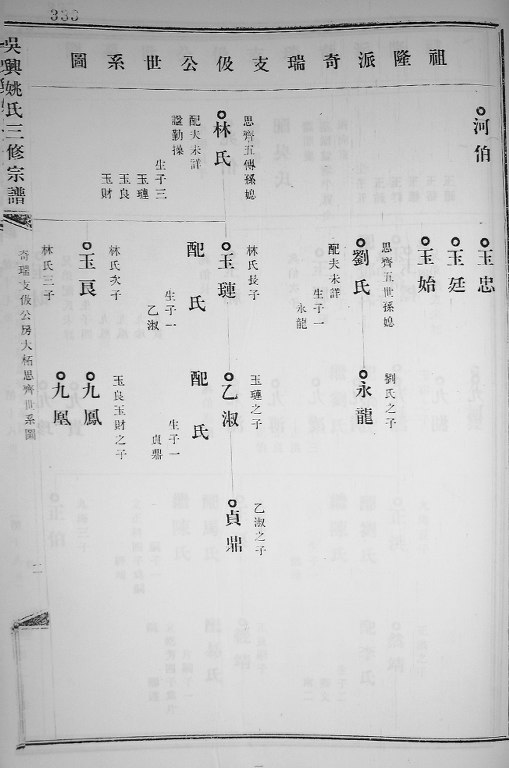 333
祖隆派奇瑞支伋公世系圖
河伯
思齊五傳孫媳
林氏
配夫未詳
謚勤操
生子三
玉璉
玉良
玉財
玉忠
玉廷
玉始
思齊五世孫媳
劉氏
配夫未詳
生子一
永龍
林氏長子
玉璉
配氏
生子一
乙淑
林氏次子
玉良
林氏三子
劉氏之子
永龍
玉璉之子
乙淑
配氏
生子一
貞鼎
玉良玉財之子
九鳳
九凰
乙淑之子
貞鼎
吳興姚氏三修宗譜
奇瑞支伋公房大柘思齊世系圖